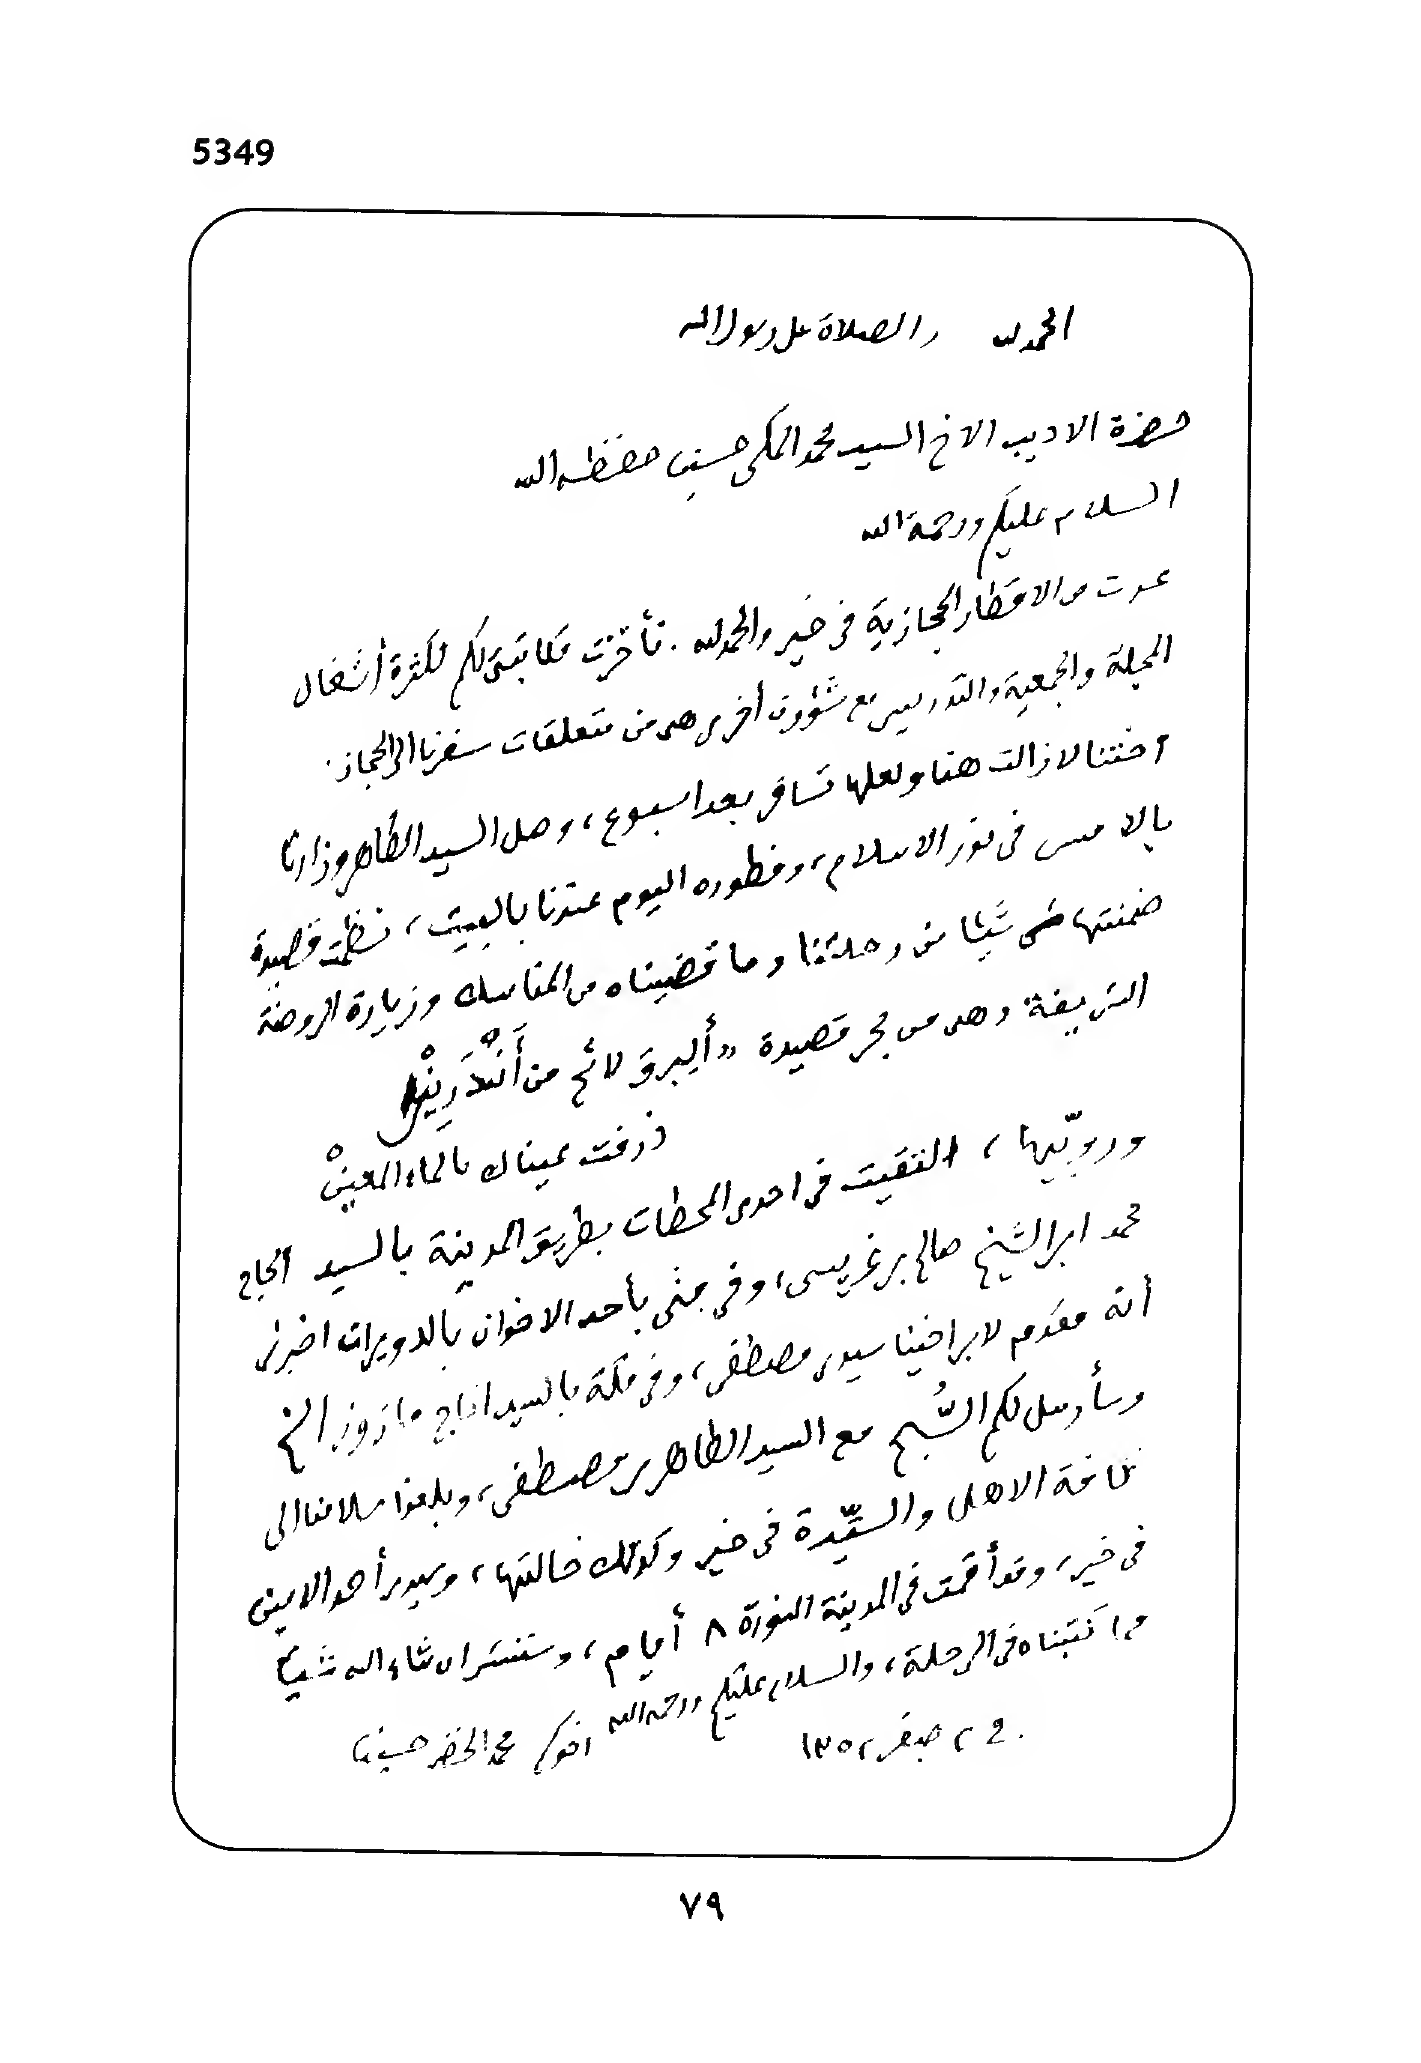 5349
الحمد لله والصلاة على رسول الله
حضرة الاديب الاخ السيد محمد المكي حسين حفظه الله
السلام عليكم ورحمة الله
عدت من الاقطار الحجازية في خير والحمد لله . تأخرت مكاتبتي لكم لكثرة أشغال
المجلة والجمعية والتدريس مع شؤون أخرى هي من متعلقات سفرنا الى الحجاز .
أختنا لا زالت هنا ولعلها تسافر بعد اسبوع ، وصل السيد الطاهر وزارنا
بالامس في نور الاسلام ، وفطوره اليوم عندنا بالبيت ، نظمت قصيدة
ضمنتها شيئا من رحلتنا وما قضيناه من المناسك وزيارة الروضة
الشريفة وهي من بحر قصيدة « ألبرق لائح من أَنْدَرِينْ
ذرفت عيناك بالماء المعينْ
ورويّها ، التقيت في احدى المحطات بطريق المدينة بالسيد الحاج
محمد ابن الشيخ صالح بن غريسي ، وفي منى بأحد الاخوان بالدويرات اخبرني
أنه مقدم لابن اخينا سيدي مصطفى ، وفي مكة بالسيد الحاج مازوز الخ
وسأرسل لكم السُّبح مع السيد الطاهر بن مصطفى ، وبلغوا سلامنا الى
كافة الاهل والسيّدة في خير وكذلك خالتها ، وسيدي أحمد الامين
في خير ، وقد أقمت في المدينة المنورة ٨ أيام ، وسننشر ان شاء الله شيئا
مما كتبناه في الرحلة ، والسلام عليكم ورحمة الله
في ٢ صفر ١٣٥٢ اخوكم محمد الخضر حسين
٧٩